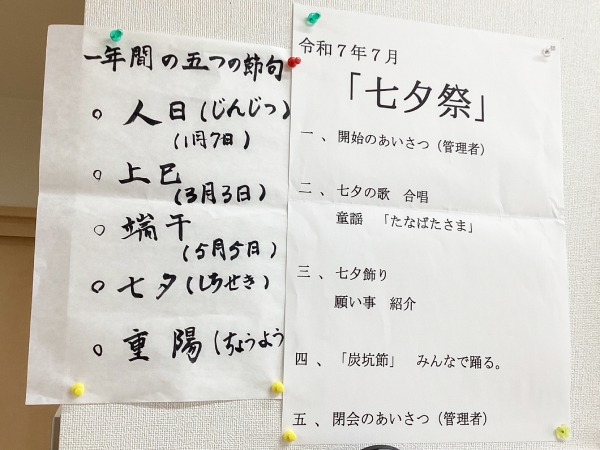 一年間の五つの節句
○ 人日(じんじつ)
(1月7日)
○ 上巳
(3月3日)
○ 端午
(5月5日)
○ 七夕(しちせき)
○ 重陽(ちょうよう
令和7年7月
「七夕祭」
一、開始のあいさつ（管理者）
二、七夕の歌 合唱
童謡 「たなばたさま」
三、七夕飾り
願い事 紹介
四、「炭坑節」 みんなで踊る。
五、閉会のあいさつ（管理者）